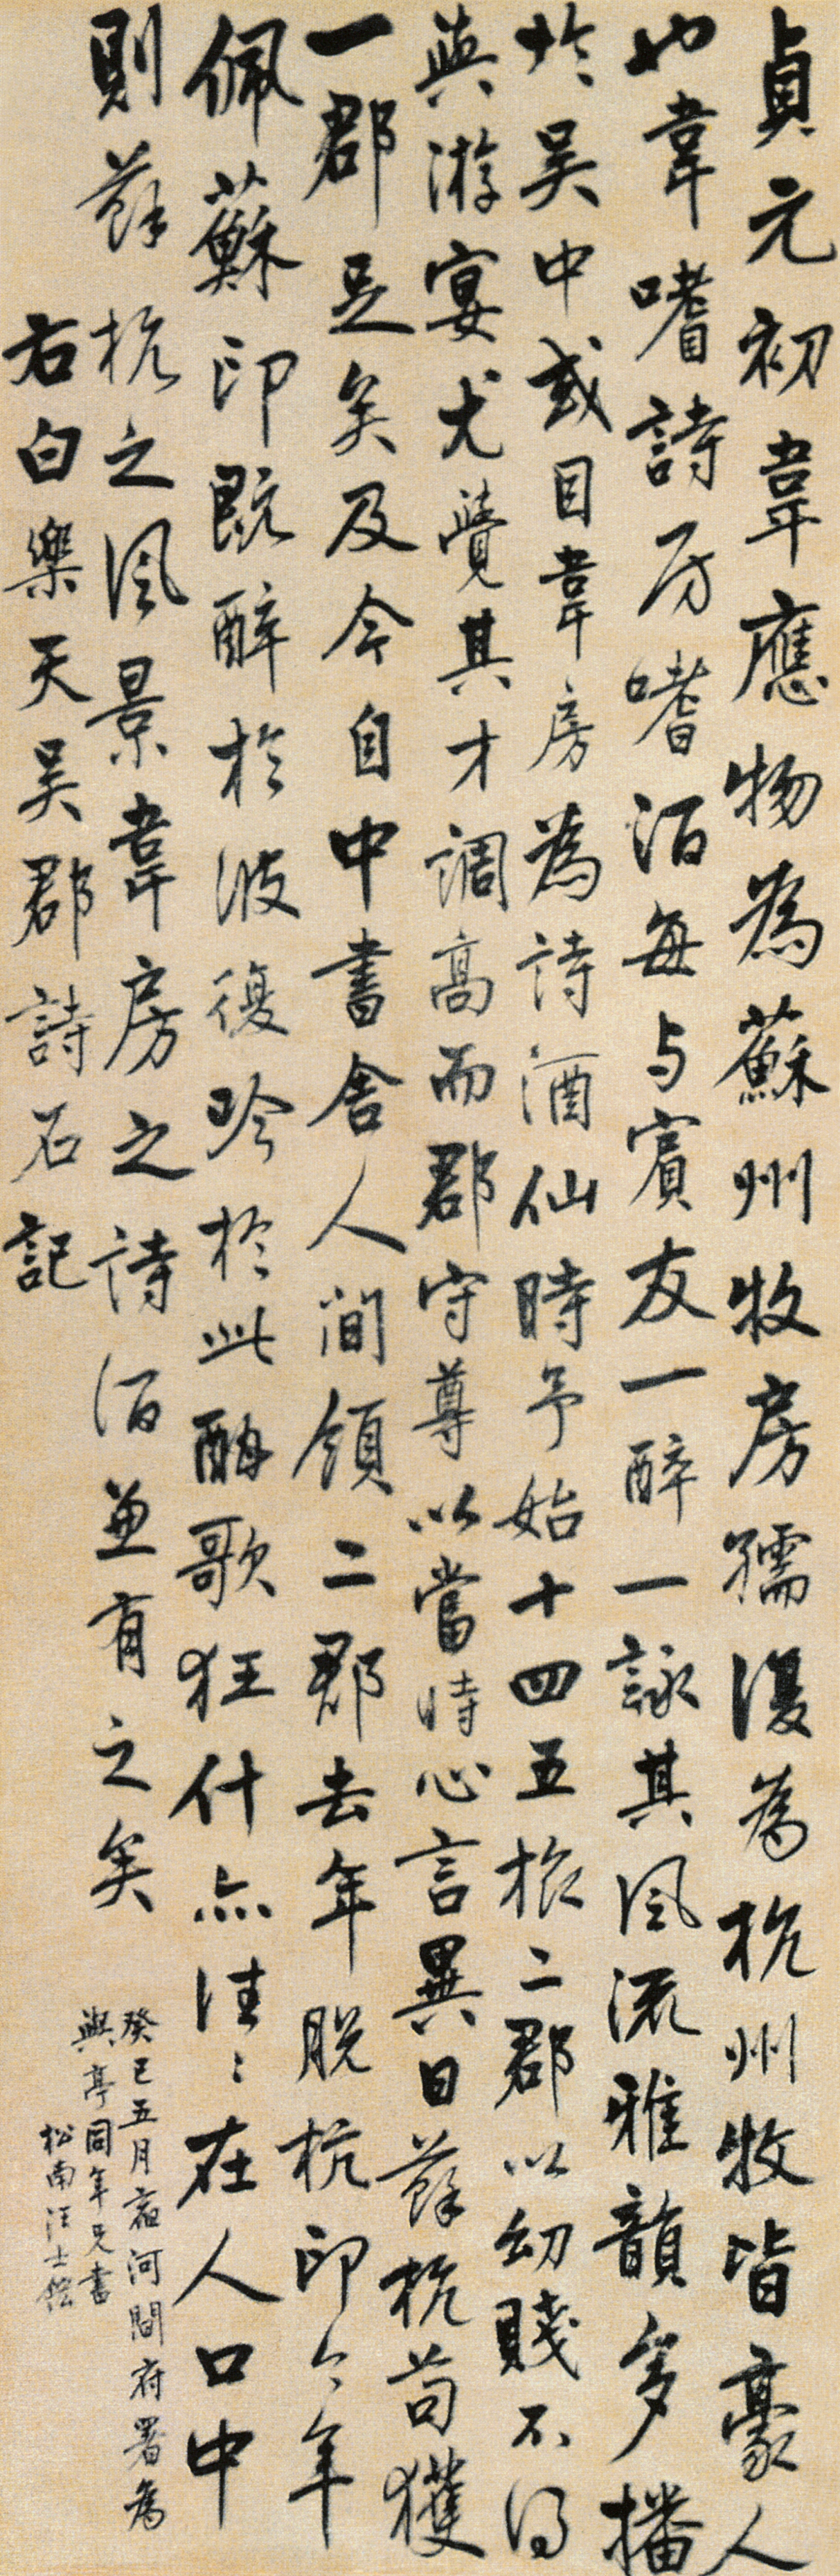 貞元初韋應物為蘇州牧房孺復為杭州牧皆豪人
也韋嗜詩房嗜酒每与賓友一醉一詠其風流雅韻多播
於吴中或目韋房為詩酒仙時予始十四五旅二郡以幼賤不得
與游宴尤覺其才調高而郡守尊以當時心言異日蘇杭苟獲
一郡足矣及今自中書舍人間領二郡去年脱杭印今年
佩蘇印既醉於彼復吟於此酣歌狂什亦往〻在人口中
則蘇杭之風景韋房之詩酒兼有之矣
右白樂天吴郡詩石記
癸巳五月寓河間府署為
與亭同年兄書
松南汪士鋐